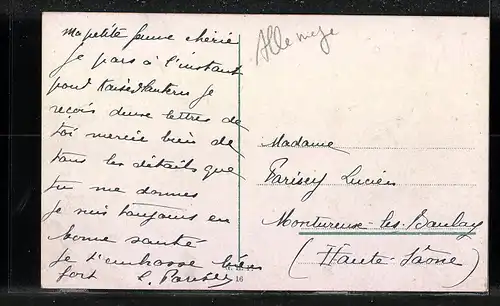 ma petite femme chérie
je pars à l'instant
pour Kaiserslautern je
reçois deux lettres de
toi merci bien de
tous les détails que
tu me donnes
je suis toujours en
bonne santé
je t'embrasse bien
fort L. Parisey
16
Allemagne
Madame
Parisey Lucien
Montureux-les-Baulay
(Haute-Saône)